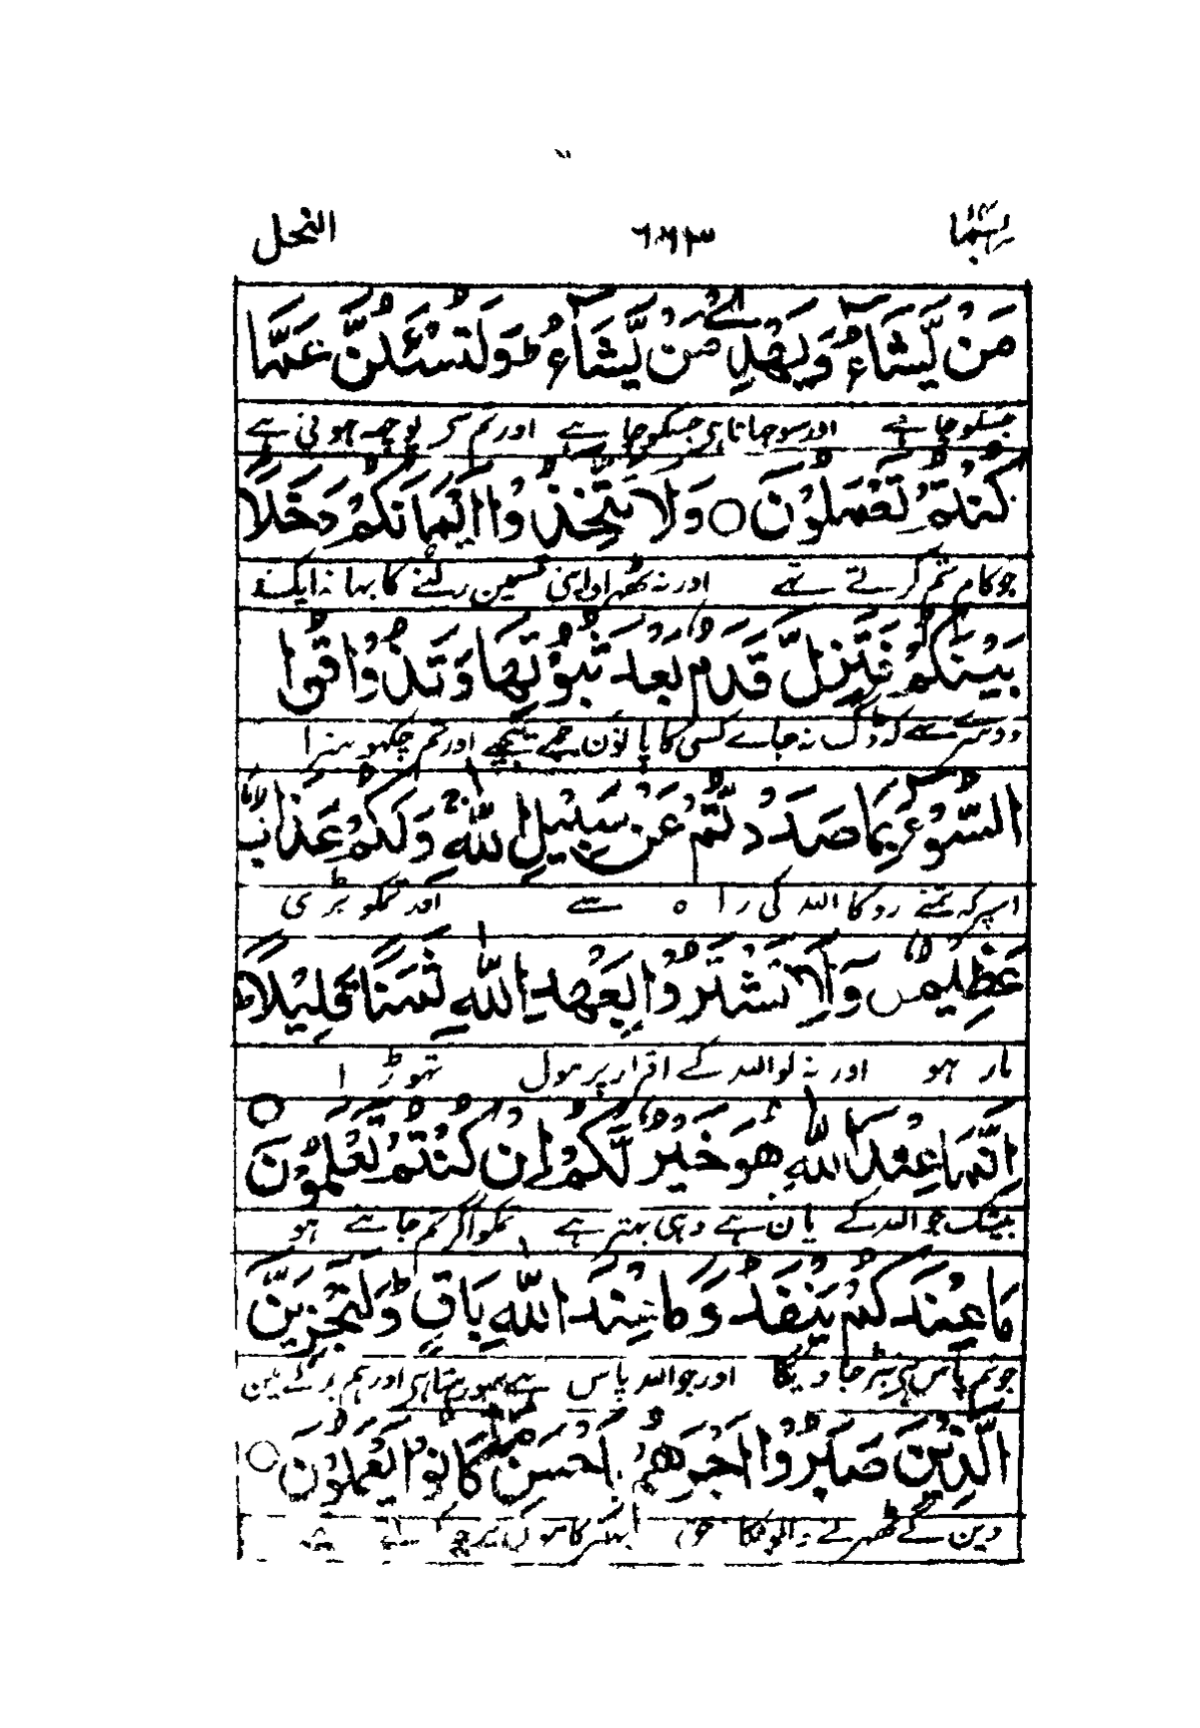 ربما ٦٦٣ النحل
مَنْ يَّشَآءُ وَيَهْدِيْ مَنْ يَّشَآءُ ؕ وَلَتُسْـَٔلُنَّ عَمَّا
جسکو چاہے اور سوجھاتا ہی جسکو چاہے اور تم سے پوچھ ہونی ہے
كُنْتُمْ تَعْمَلُوْنَ ○ وَلَا تَتَّخِذُوْٓا اَيْمَانَكُمْ دَخَلًا
جو کام تم کرتے تھے اور نہ ٹھہراو اپنی قسمین پیٹھنے کا بہانہ ایک
بَيْنَكُمْ فَتَزِلَّ قَدَمٌۢ بَعْدَ ثُبُوْتِهَا وَتَذُوْقُوا
دوسرے سے کہ ڈگ نہ جاے کسی کا پانون جمے پیچھے اور تم چکھو سزا
السُّوْٓءَ بِمَا صَدَدْتُّمْ عَنْ سَبِيْلِ اللّٰهِ ۚ وَلَكُمْ عَذَابٌ
اسپر کہ تمنے روکا اللہ کی راہ سے اور تمکو بڑی
عَظِيْمٌ وَلَا تَشْتَرُوْا بِعَهْدِ اللّٰهِ ثَمَنًا قَلِيْلًا ؕ
مار ہو اور نہ لو اللہ کے اقرار پر مول تھوڑا
اِنَّمَا عِنْدَ اللّٰهِ هُوَ خَيْرٌ لَّكُمْ اِنْ كُنْتُمْ تَعْلَمُوْنَ ○
بیشک جو اللہ کے یان ہے وہی بہتر ہے تمکو اگر تم جانتے ہو
مَا عِنْدَكُمْ يَنْفَدُ وَمَا عِنْدَ اللّٰهِ بَاقٍ ؕ وَلَنَجْزِيَنَّ
جو تم پاس ہی نبڑ جاویگا اور جو اللہ پاس ہے سو رہتا ہی اور ہم بدلے مین
الَّذِيْنَ صَبَرُوْٓا اَجْرَهُمْ بِاَحْسَنِ مَا كَانُوْا يَعْمَلُوْنَ ○
دین گے ٹھہرنے والونکا حق بہتر کامون پر جو کرتے تھے